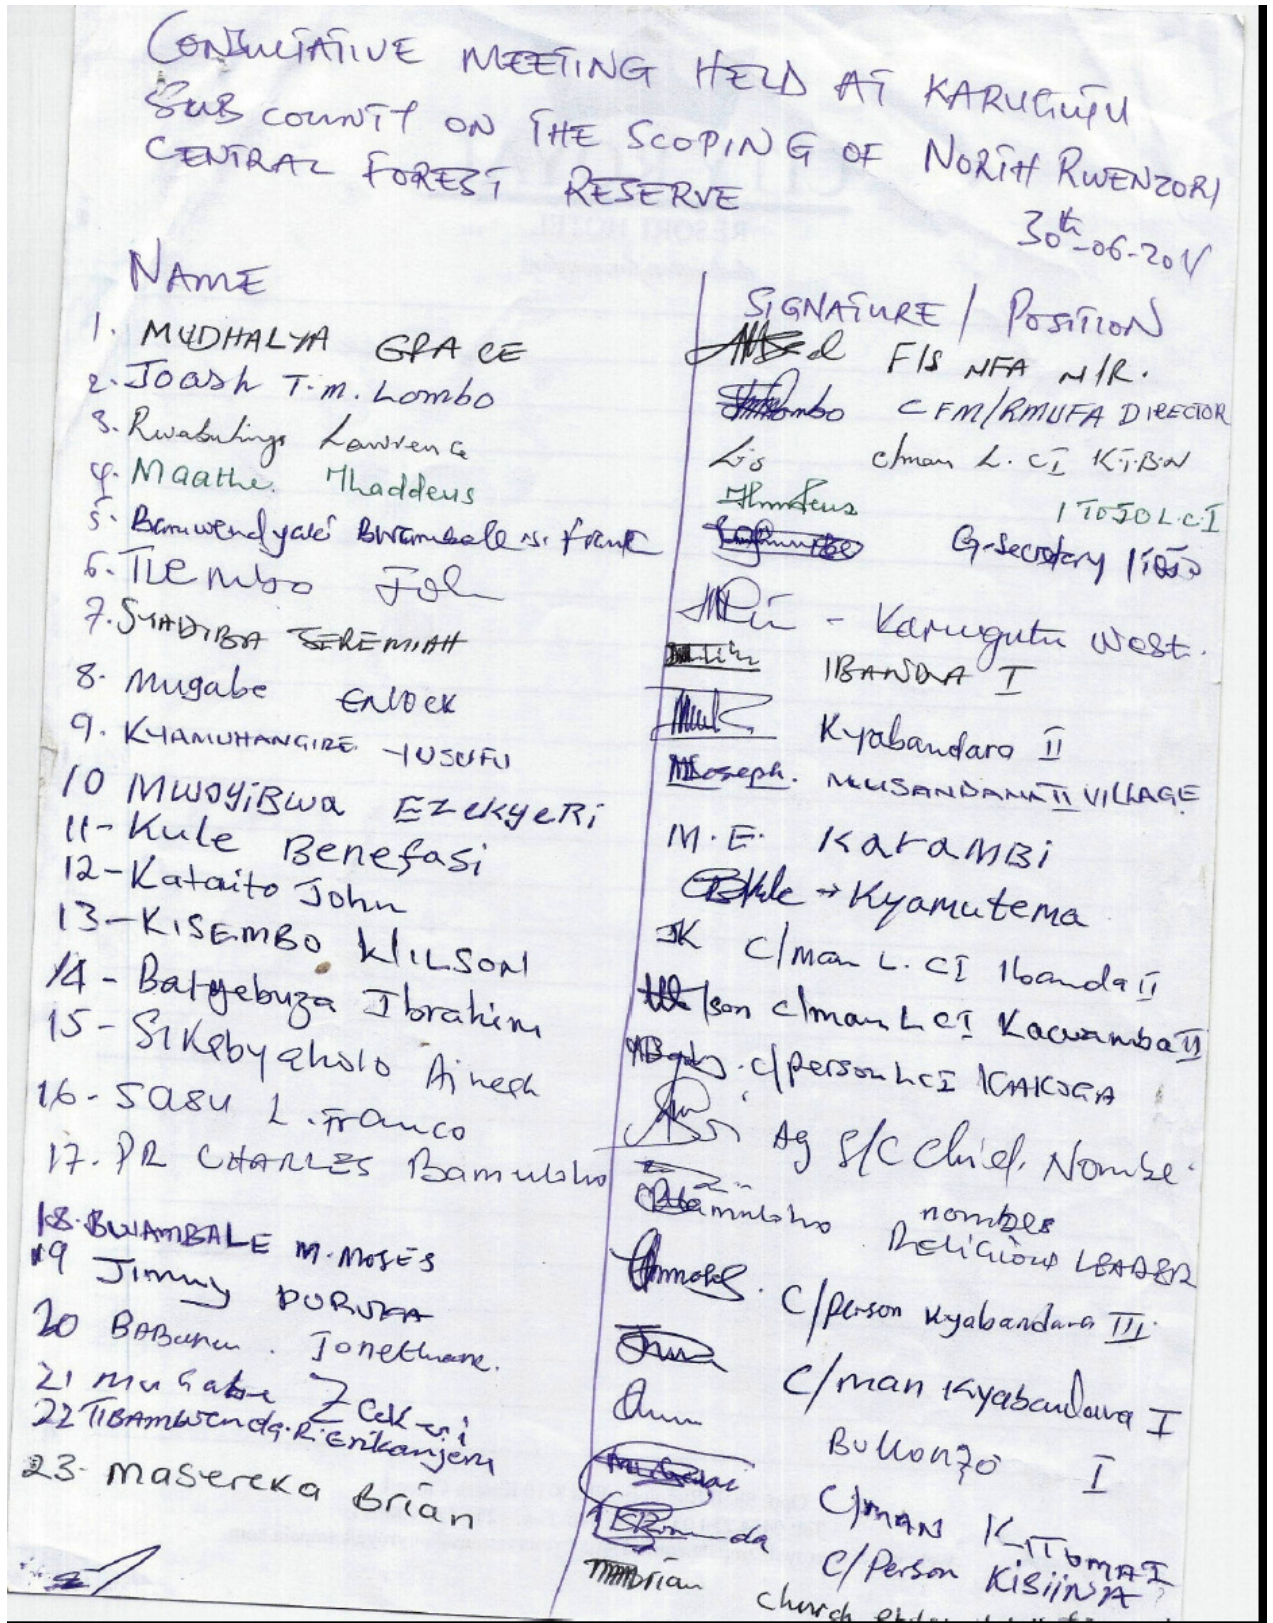 CONSULTATIVE MEETING HELD AT KARUGUTU
SUB COUNTY ON THE SCOPING OF NORTH RWENZORI
CENTRAL FOREST RESERVE
30th-06-201
NAME
SIGNATURE / POSITION
1. MUDHALYA GRACE F/S NFA N/R.
2. Joash T.M. Lombo CFM/RMUFA DIRECTOR
3. Lawrence C/man L.CI
4. Maathe Thaddeus ITOJO L.C.I
5. Bwambale S. Frank G-secretary Itojo
6. Tembo John - Karugutu West.
7. SYADIBA JEREMIAH IBANDA I
8. Mugabe ENOCK Kyabandara II
9. KYAMUHANGIRE YUSUFU MUSANDAMA II VILLAGE
10 MWOYIBWA EZEKYERI M.E. KARAMBi
11- Kule Benefasi BKule → Kyamutema
12- Kataito John JK C/man L.CI Ibanda II
13- KISEMBO WILSON C/man LCI Kacwamba II
14- Batyebuza Ibrahim C/person LCI KAKOGA
15- Sikabyaholo Ag S/C Chief. Nombe.
16- SASU L. Franco nombe
17. PR CHARLES Bamulsho RELIGIOUS LEADER
18. BWAMBALE M. MOSES C/person Kyabandara III
19 Jimmy C/man Kyabandara I
20 Jonethane. BUKONZO I
21 Mugabe Zakari C/MAN KITOMA I
22 TIBAMWENDA.R. Erikanjeru C/Person KIBIINJA
23- Masereka Brian church